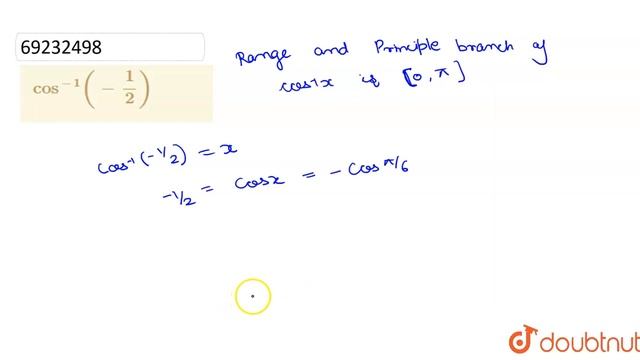 69232498
cos⁻¹(-1/2)
Range and Principle branch of
cos⁻¹x is [0, π]
cos⁻¹(-1/2) = x
-1/2 = cosx = -cos π/6
doubtnut